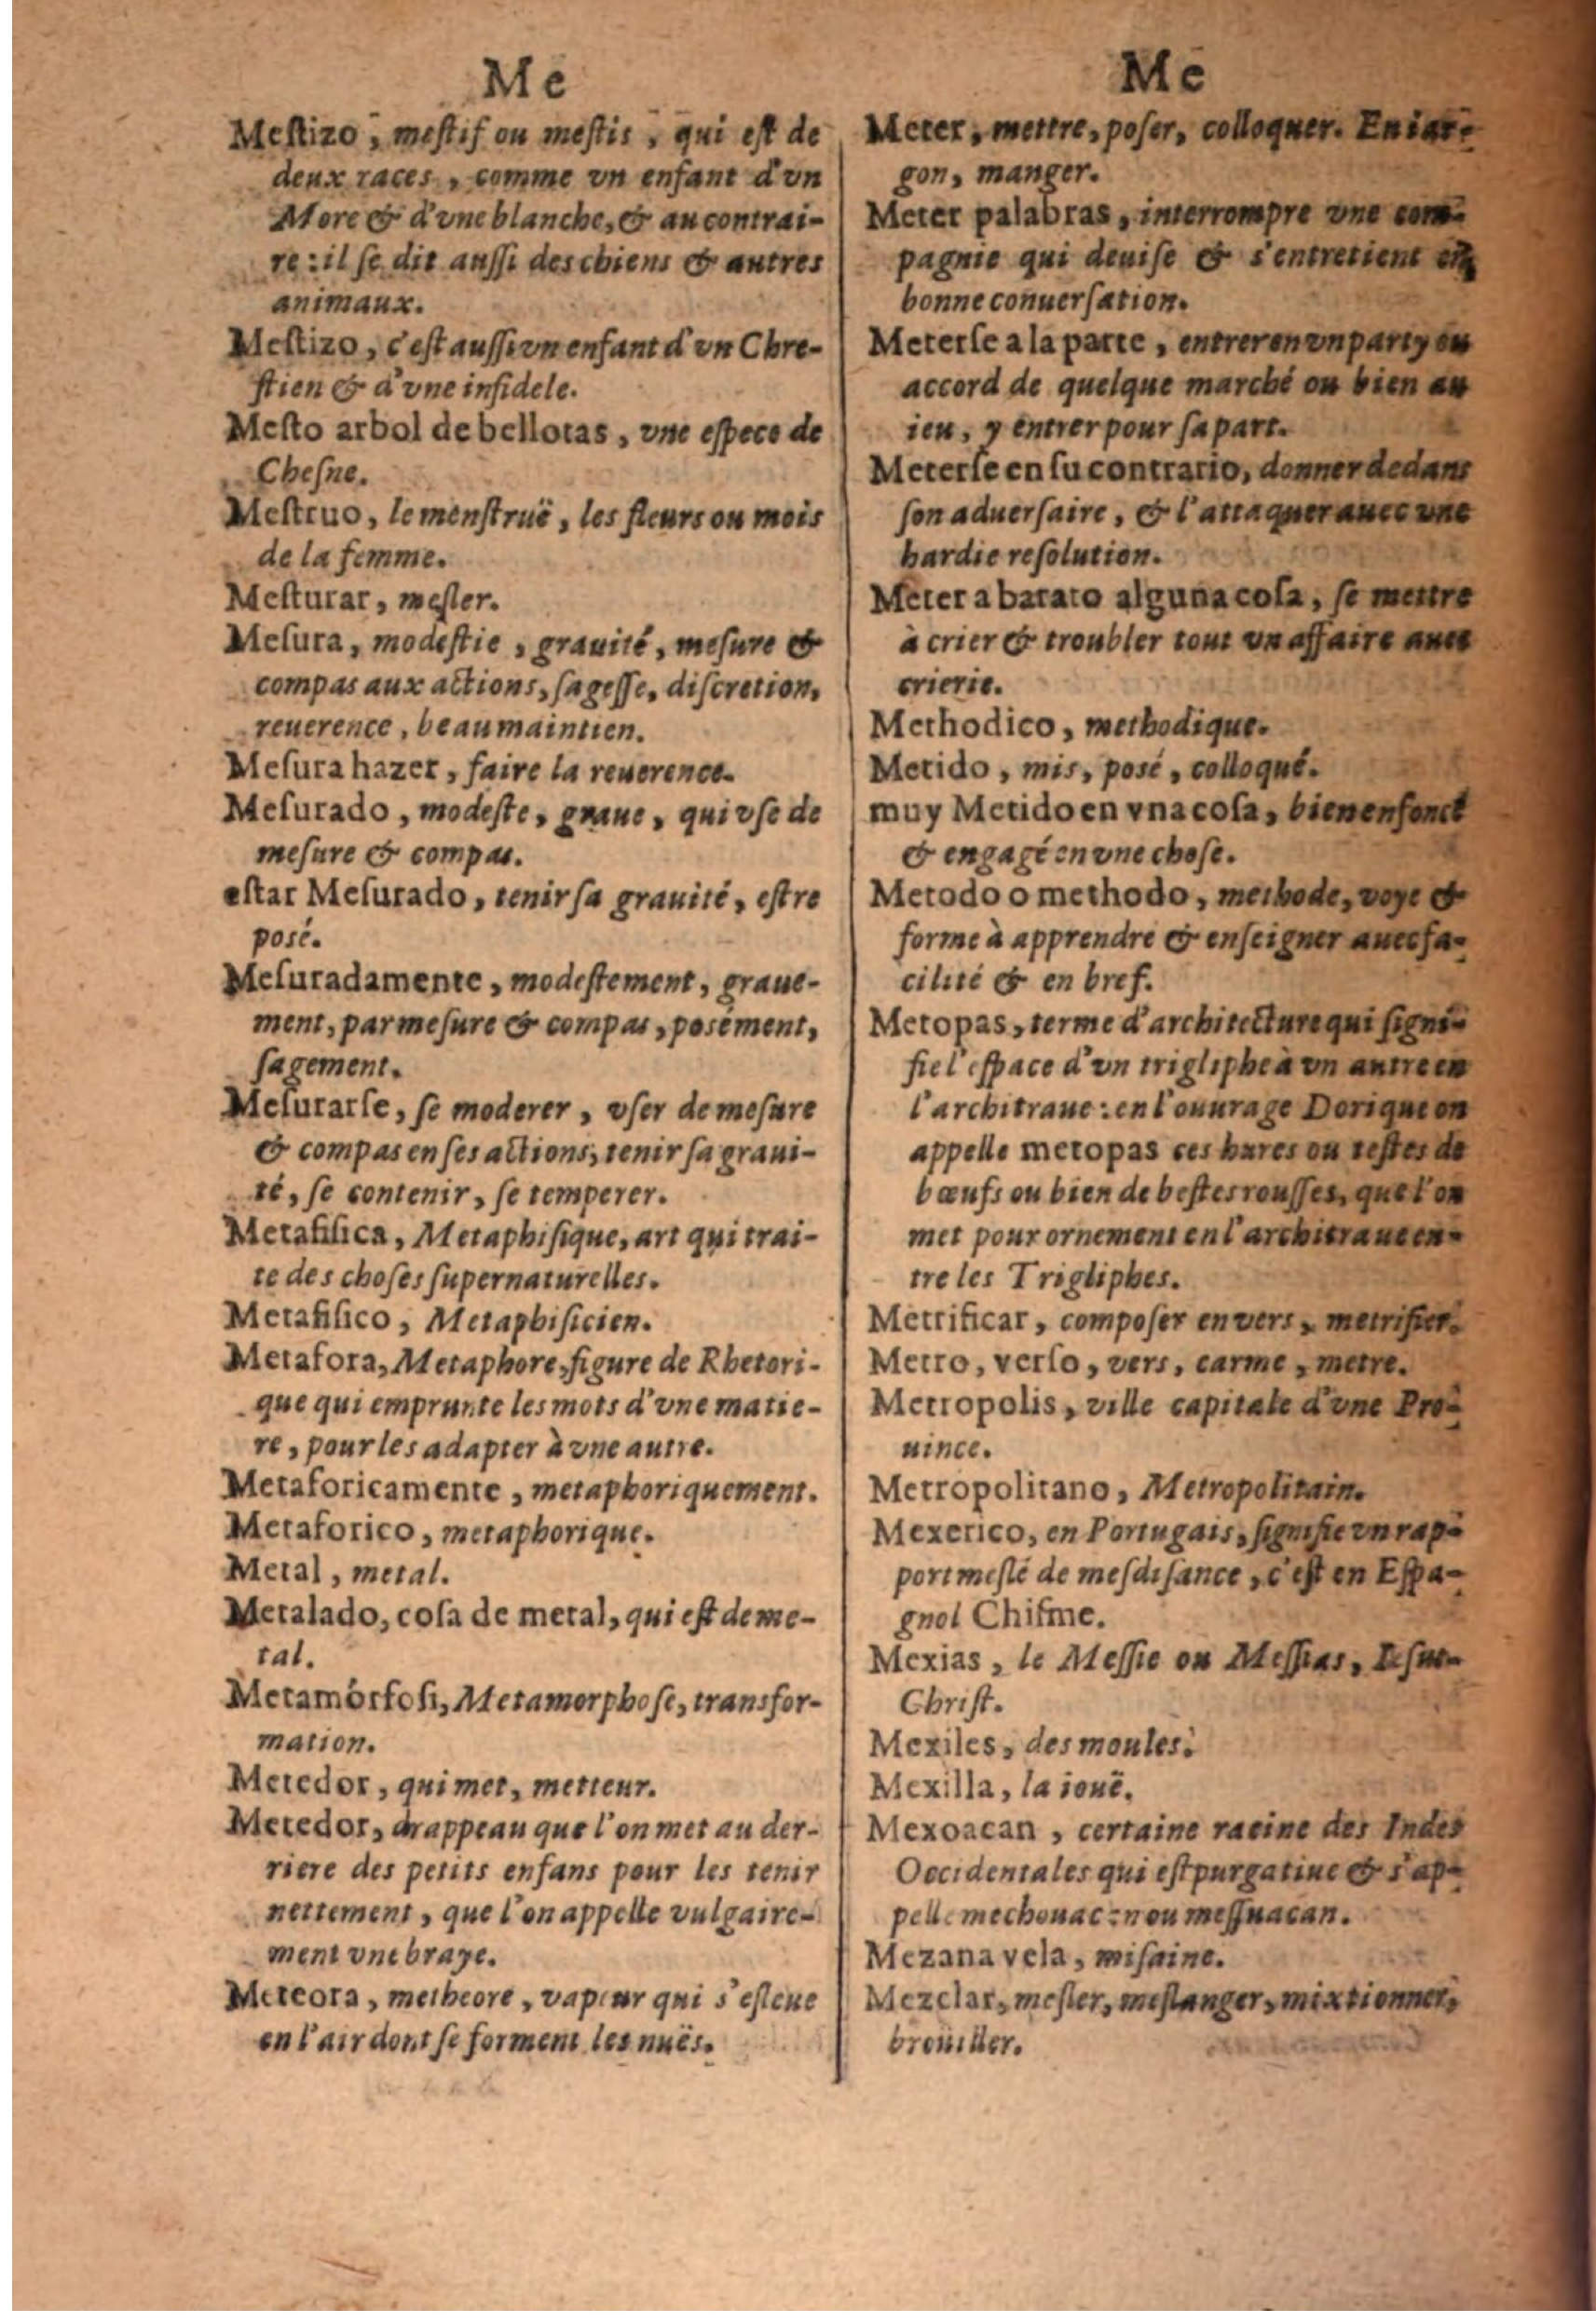 Me
Meſtizo, meſtif ou meſtis, qui eſt de
deux races, comme vn enfant d'vn
More & d'vne blanche, & au contrai-
re: il ſe dit auſſi des chiens & autres
animaux.
Meſtizo, c'eſt auſſi vn enfant d'vn Chre-
ſtien & d'vne infidele.
Meſto arbol de bellotas, vne eſpece de
Cheſne.
Meſtruo, le menſtruë, les fleurs ou mois
de la femme.
Meſturar, meſler.
Meſura, modeſtie, grauité, meſure &
compas aux actions, ſageſſe, diſcretion,
reuerence, beau maintien.
Meſura hazer, faire la reuerence.
Meſurado, modeſte, graue, qui vſe de
meſure & compas.
eſtar Meſurado, tenir ſa grauité, eſtre
posé.
Meſuradamente, modeſtement, graue-
ment, par meſure & compas, posément,
ſagement.
Meſurarſe, ſe moderer, vſer de meſure
& compas en ſes actions, tenir ſa graui-
té, ſe contenir, ſe temperer.
Metafiſica, Metaphiſique, art qui trai-
te des choſes ſupernaturelles.
Metafiſico, Metaphiſicien.
Metafora, Metaphore, figure de Rhetori-
que qui emprunte les mots d'vne matie-
re, pour les adapter à vne autre.
Metaforicamente, metaphoriquement.
Metaforico, metaphorique.
Metal, metal.
Metalado, coſa de metal, qui eſt de me-
tal.
Metamórfoſi, Metamorphoſe, transfor-
mation.
Metedor, qui met, metteur.
Metedor, drappeau que l'on met au der-
riere des petits enfans pour les tenir
nettement, que l'on appelle vulgaire-
ment vne braye.
Meteora, metheore, vapeur qui s'eſleue
en l'air dont ſe forment les nuës.
Me
Meter, mettre, poſer, colloquer. En iar-
gon, manger.
Meter palabras, interrompre vne com-
pagnie qui deuiſe & s'entretient en
bonne conuerſation.
Meterſe a la parte, entrer en vn party ou
accord de quelque marché ou bien au
ieu, y entrer pour ſa part.
Meterſe en ſu contrario, donner dedans
ſon aduerſaire, & l'attaquer auec vne
hardie reſolution.
Meter a barato alguna coſa, ſe mettre
à crier & troubler tout vn affaire auec
crierie.
Methodico, methodique.
Metido, mis, posé, colloqué.
muy Metido en vna coſa, bien enfoncé
& engagé en vne choſe.
Metodo o methodo, methode, voye &
forme à apprendre & enſeigner auec fa-
cilité & en bref.
Metopas, terme d'architecture qui ſigni-
fie l'eſpace d'vn trigliphe à vn autre en
l'architraue: en l'ouurage Dorique on
appelle metopas ces hures ou teſtes de
bœufs ou bien de beſtes rouſſes, que l'on
met pour ornement en l'architraue en-
tre les Trigliphes.
Metrificar, compoſer en vers, metrifier.
Metro, verſo, vers, carme, metre.
Metropolis, ville capitale d'vne Pro-
uince.
Metropolitano, Metropolitain.
Mexerico, en Portugais, ſignifie vn rap-
port meslé de meſdiſance, c'eſt en Eſpa-
gnol Chiſme.
Mexias, le Meſſie ou Meſſias, Ieſus-
Chriſt.
Mexiles, des moules.
Mexilla, la iouë.
Mexoacan, certaine racine des Indes
Occidentales qui eſt purgatiue & s'ap-
pelle mechouacan ou meſſuacan.
Mezana vela, miſaine.
Mezclar, meſler, meſlanger, mixtionner,
broüiller.